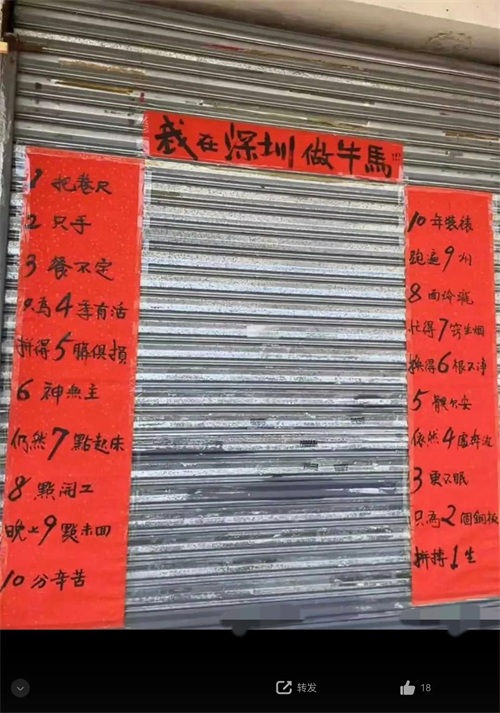 我在深圳做牛馬!!!
1把卷尺
2只手
3餐不定
只為4季有活
拼得5臟俱損
6神無主
仍然7點起床
8點開工
晚上9點未回
10分辛苦
10年裝裱
跑遍9州
8面玲瓏
忙得7竅生烟
換得6根不净
5體欠安
依然4處奔波
3更不眠
只為2個銅板
拼搏1生
转发
18